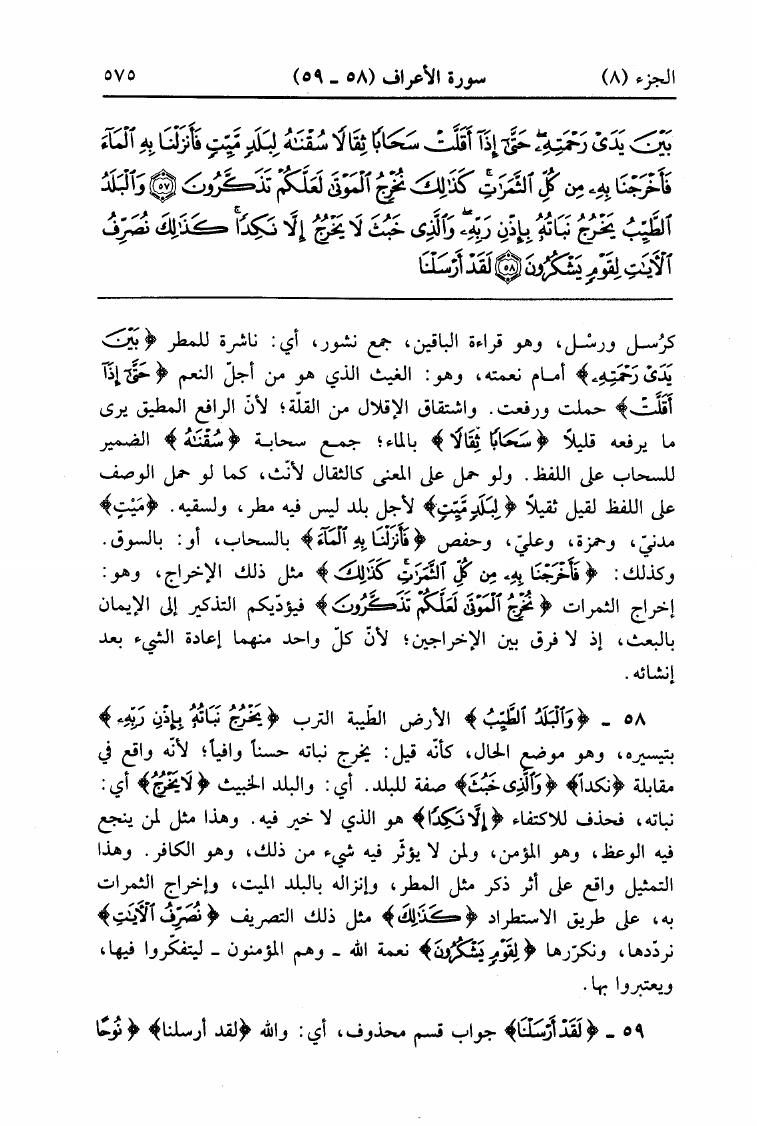 الجزء (٨) سورة الأعراف (٥٨ - ٥٩) ٥٧٥
بَيْنَ يَدَىْ رَحْمَتِهِۦ حَتَّىٰٓ إِذَآ أَقَلَّتْ سَحَابًا ثِقَالًا سُقْنَٰهُ لِبَلَدٍ مَّيِّتٍ فَأَنزَلْنَا بِهِ ٱلْمَآءَ
فَأَخْرَجْنَا بِهِۦ مِن كُلِّ ٱلثَّمَرَٰتِ كَذَٰلِكَ نُخْرِجُ ٱلْمَوْتَىٰ لَعَلَّكُمْ تَذَكَّرُونَ ٥٧ وَٱلْبَلَدُ
ٱلطَّيِّبُ يَخْرُجُ نَبَاتُهُۥ بِإِذْنِ رَبِّهِۦ وَٱلَّذِى خَبُثَ لَا يَخْرُجُ إِلَّا نَكِدًا كَذَٰلِكَ نُصَرِّفُ
ٱلْأَيَٰتِ لِقَوْمٍ يَشْكُرُونَ ٥٨ لَقَدْ أَرْسَلْنَا
كرُسل ورسْل، وهو قراءة الباقين، جمع نشور، أي: ناشرة للمطر ﴿بَيْنَ
يَدَىْ رَحْمَتِهِۦ﴾ أمام نعمته، وهو: الغيث الذي هو من أجلّ النعم ﴿حَتَّىٰٓ إِذَآ
أَقَلَّتْ﴾ حملت ورفعت. واشتقاق الإقلال من القلّة؛ لأنّ الرافع المطيق يرى
ما يرفعه قليلاً ﴿سَحَابًا ثِقَالًا﴾ بالماء؛ جمع سحابة ﴿سُقْنَٰهُ﴾ الضمير
للسحاب على اللفظ. ولو حمل على المعنى كالثقال لأنّث، كما لو حمل الوصف
على اللفظ لقيل ثقيلاً ﴿لِبَلَدٍ مَّيِّتٍ﴾ لأجل بلد ليس فيه مطر، ولسقيه. ﴿مَيِّتٍ﴾
مدنيّ، وحمزة، وعليّ، وحفص ﴿فَأَنزَلْنَا بِهِ ٱلْمَآءَ﴾ بالسحاب، أو: بالسوق.
وكذلك: ﴿فَأَخْرَجْنَا بِهِۦ مِن كُلِّ ٱلثَّمَرَٰتِ كَذَٰلِكَ﴾ مثل ذلك الإخراج، وهو:
إخراج الثمرات ﴿نُخْرِجُ ٱلْمَوْتَىٰ لَعَلَّكُمْ تَذَكَّرُونَ﴾ فيؤدّيكم التذكير إلى الإيمان
بالبعث، إذ لا فرق بين الإخراجين؛ لأنّ كلّ واحد منهما إعادة الشيء بعد
إنشائه.
٥٨ - ﴿وَٱلْبَلَدُ ٱلطَّيِّبُ﴾ الأرض الطّيبة الترب ﴿يَخْرُجُ نَبَاتُهُۥ بِإِذْنِ رَبِّهِۦ﴾
بتيسيره، وهو موضع الحال، كأنّه قيل: يخرج نباته حسناً وافياً؛ لأنّه واقع في
مقابلة ﴿نكداً﴾ ﴿وَٱلَّذِى خَبُثَ﴾ صفة للبلد. أي: والبلد الخبيث ﴿لَا يَخْرُجُ﴾ أي:
نباته، فحذف للاكتفاء ﴿إِلَّا نَكِدًا﴾ هو الذي لا خير فيه. وهذا مثل لمن ينجع
فيه الوعظ، وهو المؤمن، ولمن لا يؤثّر فيه شيء من ذلك، وهو الكافر. وهذا
التمثيل واقع على أثر ذكر مثل المطر، وإنزاله بالبلد الميت، وإخراج الثمرات
به، على طريق الاستطراد ﴿كَذَٰلِكَ﴾ مثل ذلك التصريف ﴿نُصَرِّفُ ٱلْأَيَٰتِ﴾
نردّدها، ونكرّرها ﴿لِقَوْمٍ يَشْكُرُونَ﴾ نعمة الله - وهم المؤمنون - ليتفكّروا فيها،
ويعتبروا بها.
٥٩ - ﴿لَقَدْ أَرْسَلْنَا﴾ جواب قسم محذوف، أي: والله ﴿لقد أرسلنا﴾ ﴿نُوحًا